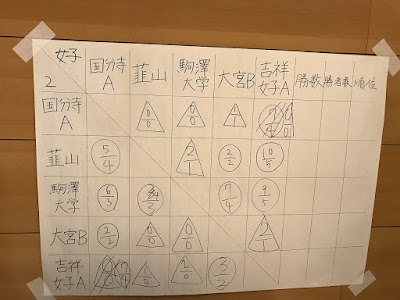 女子
2
国分寺
A
韮山
駒澤
大学
大宮B
吉祥
女子A
勝数
勝者数
順位
国分寺
A
0/0
0/0
1/1
韮山
5/4
2/1
2/2
10/5
駒澤
大学
6/3
7/4
9/5
大宮B
2/2
0/0
2/1
吉祥
女子A
1/0
3/2